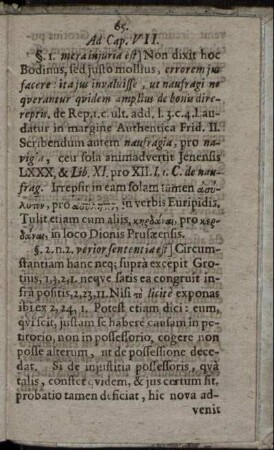 65.
Ad Cap. VII.
§. 1. mera injuria est] Non dixit hoc
Bodinus, sed justo mollius, errorem jus
facere: ita jus invaluisse, ut naufragi ne
querantur quidem amplius de bonis dire-
reptis. de Rep. 1. c. ult. add. l. 3. c. 4. l. au-
datur in margine Authentica Frid. II.
Scribendum autem naufragia, pro na-
vigia, ceu sola animadvertit Jenensis
LXXX, & Lib. XI, pro XII. l. 1. C. de nau-
frag. Irrepsit in eam solam tamen
pro in verbis Euripidis.
Tulit etiam cum aliis, κηρδάναι, pro κερ-
δᾶναι, in loco Dionis Prusæensis.
§. 2. n. 2. verior sententia est] Circum-
stantiam hanc neq; suprà excepit Gro-
tius, 1, 3, 2, 1. neque satis ea congruit in-
frà positis, 2, 23, 11. Nisi τὸ licitè exponas
ibi ex 2, 24, 1. Potest etiam dici: eum,
qui scit, justam se habere causam in pe-
titorio, non in possessorio, cogere non
posse alterum, ut de possessione dece-
dat. Si de injustitia possessoris, quà
talis, constet qvidem, & jus certum sit,
probatio tamen deficiat, hic nova ad-
venit